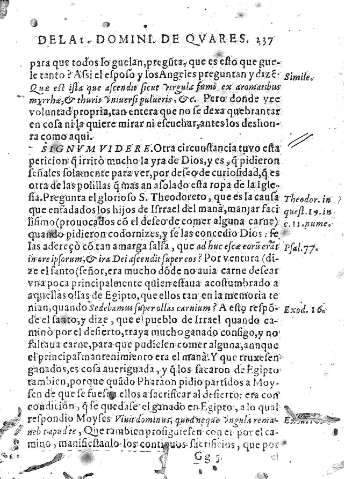 DE LA 1. DOMINI. DE QVARES. 237
para que todos lo guelan, pregũta, que es esto que gue-
le tanto? Assi el esposo y los Angeles preguntan y dizẽ:
Quæ est ista quæ ascendit sicut virgula fumi ex aromatibus
myrrhæ, & thuris vniuersi pulueris, &c. Pero donde yve
voluntad propria, tan entera que no se dexa quebrantar
en cosa ni la quiere mirar ni escuchar, antes los deshon-
ra como aqui.
SIGNVM VIDERE. Otra circunstancia tuvo esta
peticion q̃ irritò mucho la yra de Dios, y es, q̃ pidieron
señales solamente para ver, por deseo de curiosidad, q̃ es
otra de las polillas q̃ mas an asolado esta ropa de la Igle-
sia. Pregunta el glorioso S. Theodoreto, que es la causa
que enfadados los hijos de Isrrael del manà, manjar faci
lissimo (provocados cõ el deseo de comer alguna carne)
quando pidieron codornizes, y se las concedio Dios: se
las adereçò cõ tan amarga salsa, que ad huc escæ eorũ erãt
in ore ipsorum, & ira Dei ascendit super eos? Por ventura (di-
ze el santo) señor, era mucho dõde no avia carne desear
vna poca principalmente quien estava acostumbrado a
aquellas ollas de Egipto, que ellos tan en la memoria te
nian, quando Sedebamus super ollas carnium? A esto respõ-
de el santo, y dize, que el pueblo de Israel quando ca-
minò por el desierto, traya mucho ganado consigo, y no
faltava carne, para que pudiesen comer alguna, aunque
el principal mantenimiento era el manà? Y que truxesen
ganados, es cosa averiguada, y q̃ los sacaron de Egipto
tambien, porque quãdo Pharaon pidio partidos a Moy-
sen de que se fuesen ellos a sacrificar al desierto: era con
condiciõn, q̃ se quedase el ganado en Egipto, a lo qual
respondio Moyses Vivit dominus, quod neque vngula rema-
neb
Que tambien prosiguiesen con el por el ca-
mino, manifiestanlo los continuos sacrificios, que por
Gg 5. el
Simile.
Theodor. in
quæst. 19. in
c. 11. nume.
Psal. 77.
Exod. 16.